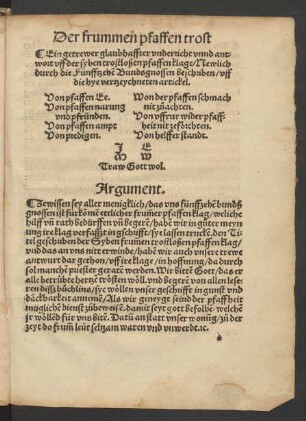 Der frummen pfaffen trost
Ein getrewer glaubhaffter vnderricht vnnd ant-
wort vff der syben trostloßen pfaffen klage/ Newlich
durch die Fünfftzehē Bundsgnossen beschriben/ vff
die hye vertzeychneten artickel.
Von pfaffen Ee.
Von pfaffen narung
vnd pfründen.
Von pfaffen ampt
Von predigen.
Von der pfaffen schmach
nit zůachten.
Von vffrur wider pfaff-
heit nit zeförchten.
Von helffer standt.
I E
M W
Traw Gott wol.
Argument.
Zewissen sey aller menigklich/ das vns fünffzehē bundß
gnossen ist fürkōmē ettlicher frumer pfaffen klag/ weliche
hilff vn̄ rath bedürffen vn̄ begerē/ habē wir in gůter meyn
ung ire klag verfaßzt in geschifft/ sye lassen trucke̅ den Ti
tel geschriben der Syben frumēn trostloßen pfaffen klag/
vnd das an vns nit erwinde/ habē wir auch vnsere trewe
antwurt dar gethon/ vff ire klage/ in hoffnung/ da durch
sol manche̅ priester gerate̅ werden. Wir bitē Gott/ das er
alle betrůbte hertzē trōsten wōll/ vnd begerē von allen leser
ren dißz bůchlins/ sye wōllen vnser geschifft in gunst vnd
dāckbarkeit annemē/ Als wir geneygt seind der pfaffheit
muglichē dienst zůbeweisē. damit seyt gott befolhē/ welchē
ir wōlled für vns bitē. Datū an statt vnser wonūg/ zů der
zeyt do frum leüt seltzam waren vnd vnwerdt. ꝛc.